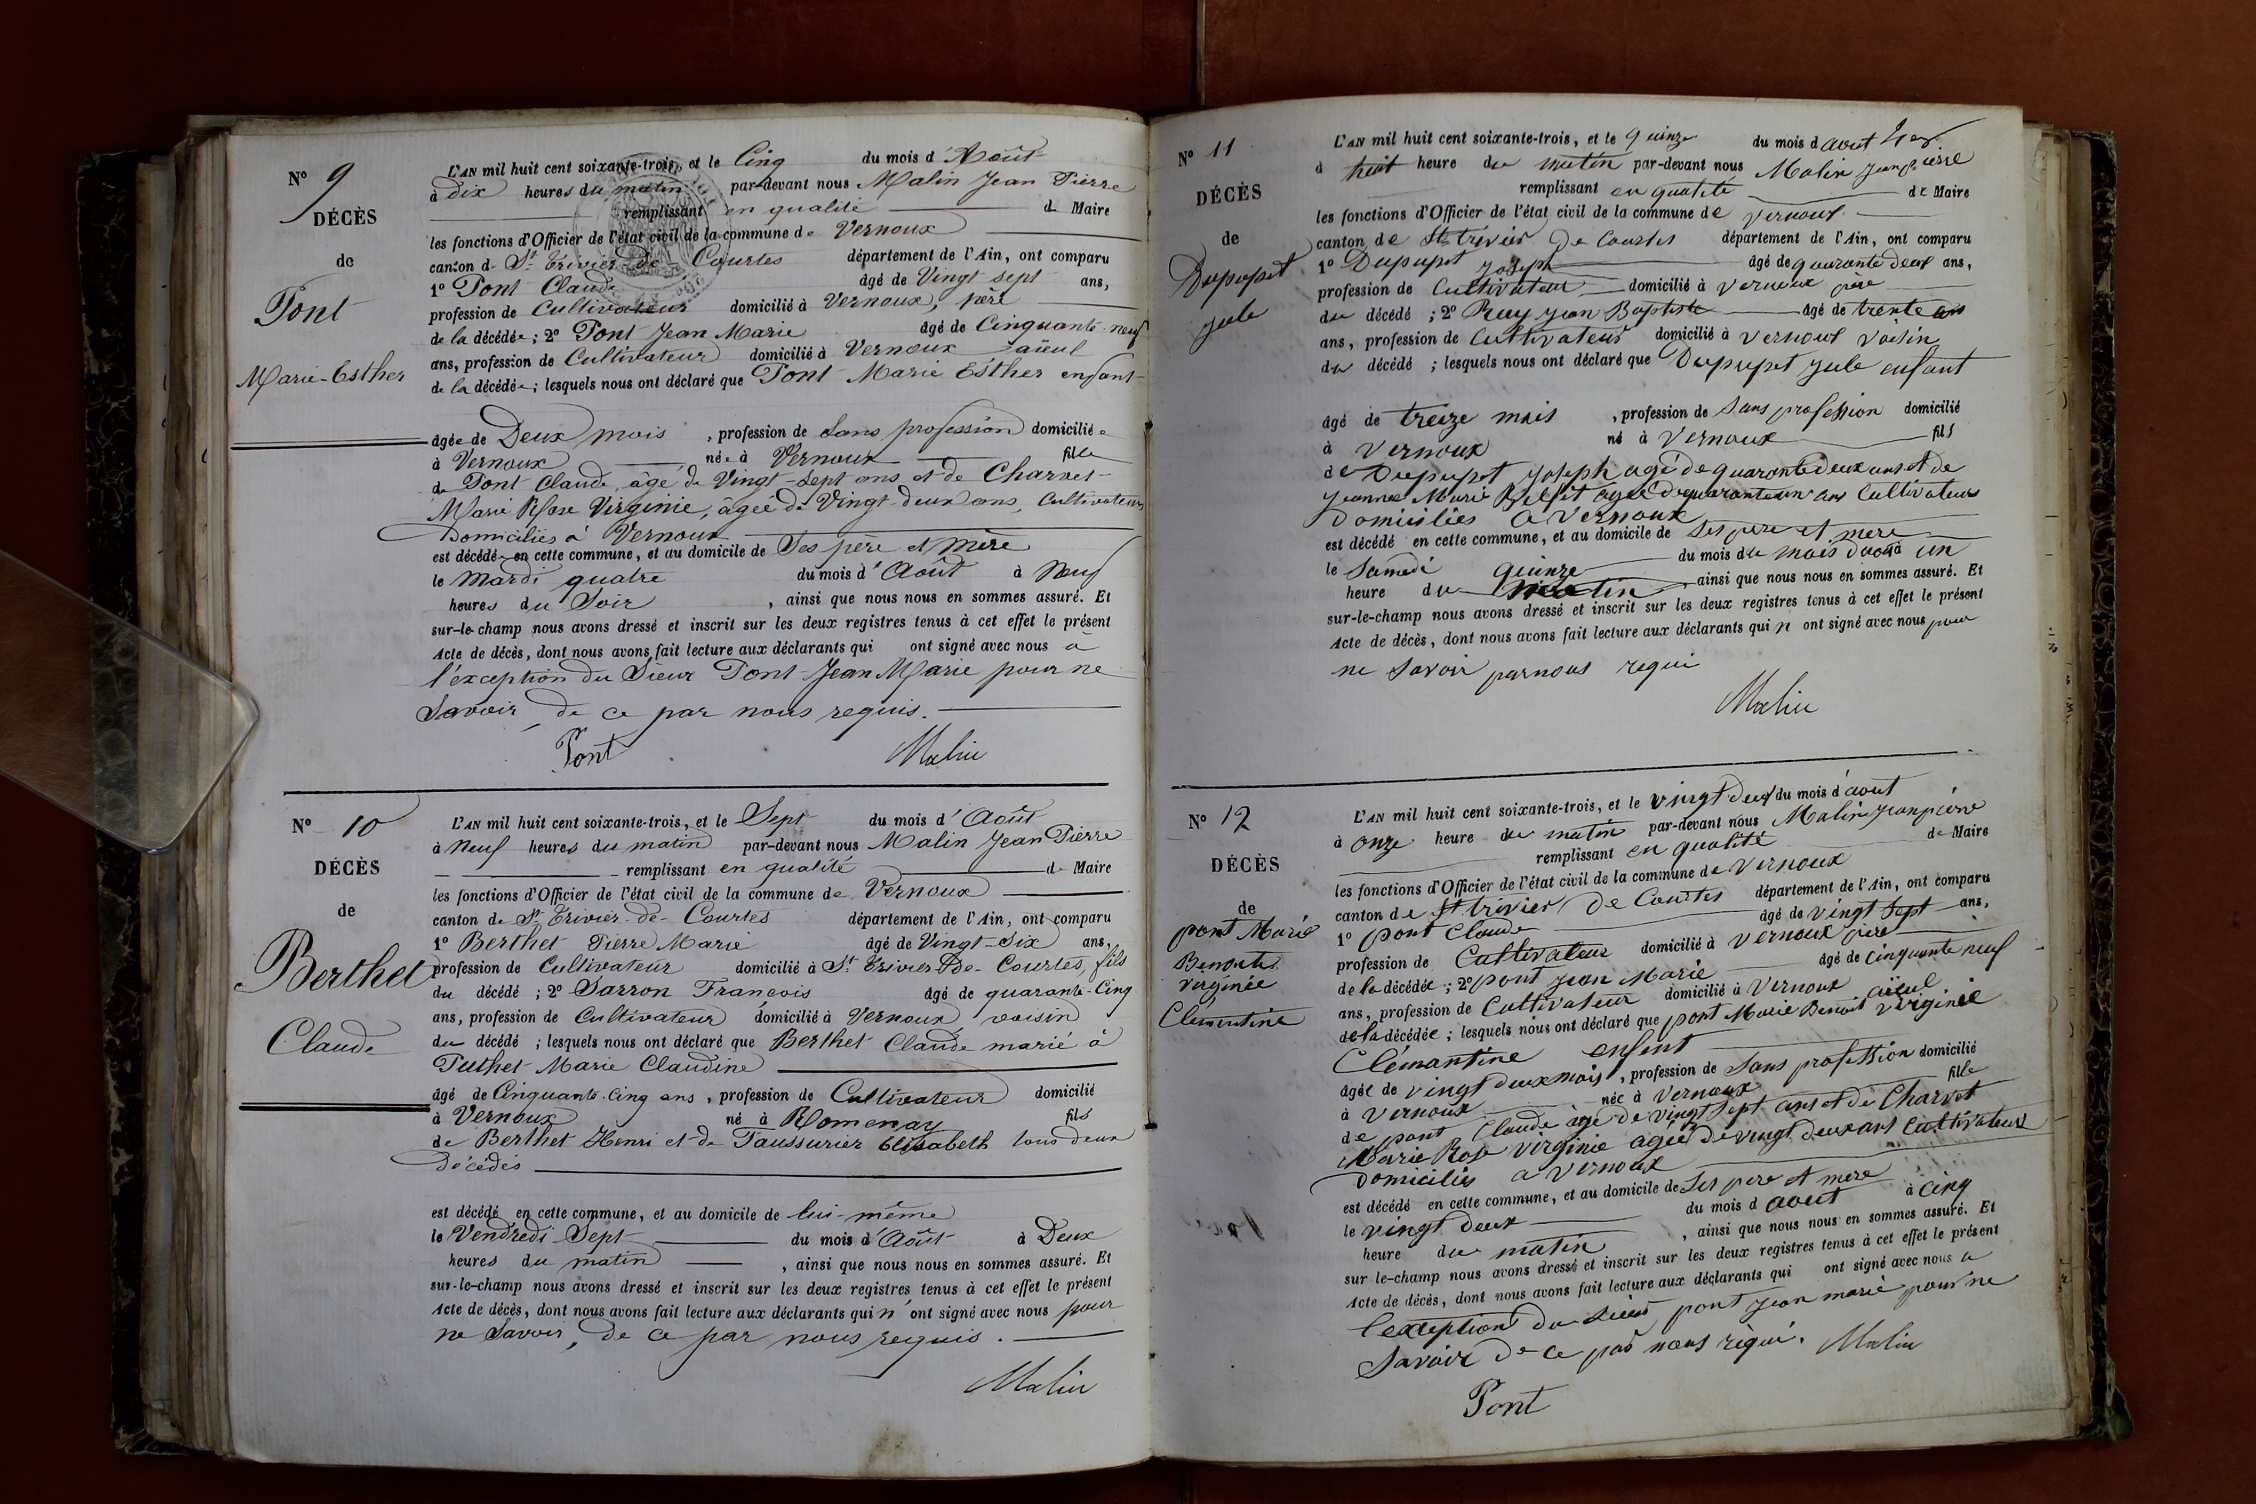 N° 9
DÉCÈS
de
Pont
Marie-Esther
L'AN mil huit cent soixante-trois, et le Cinq du mois d'Août
à dix heures du matin par-devant nous Malin Jean Pierre
remplissant en qualité de Maire
les fonctions d'Officier de l'état civil de la commune de Vernoux
canton de St Trivier de Courtes département de l'Ain, ont comparu
1° Pont Claude âgé de Vingt sept ans,
profession de Cultivateur domicilié à Vernoux, père
de la décédée; 2° Pont Jean Marie âgé de Cinquante-neuf
ans, profession de Cultivateur domicilié à Vernoux aïeul
de la décédée; lesquels nous ont déclaré que Pont Marie Esther enfant
âgée de Deux mois, profession de Sans profession domiciliée
à Vernoux née à Vernoux fille
de Pont Claude, âgé de Vingt-sept ans et de Charvet
Marie Rose Virginie, âgée de Vingt-deux ans, Cultivateurs
Domiciliés à Vernoux
est décédée en cette commune, et au domicile de Ses père et mère
le Mardi quatre du mois d'Août à Neuf
heures du Soir, ainsi que nous nous en sommes assuré. Et
sur-le-champ nous avons dressé et inscrit sur les deux registres tenus à cet effet le présent
Acte de décès, dont nous avons fait lecture aux déclarants qui ont signé avec nous à
l'exception du Sieur Pont Jean Marie pour ne
Savoir, de ce par nous requis.
Pont Malin
N° 10
DÉCÈS
de
Berthet
Claude
L'AN mil huit cent soixante-trois, et le Sept du mois d'Août
à Neuf heures du matin par-devant nous Malin Jean Pierre
remplissant en qualité de Maire
les fonctions d'Officier de l'état civil de la commune de Vernoux
canton de St Trivier-de-Courtes département de l'Ain, ont comparu
1° Berthet Pierre Marie âgé de Vingt-Six ans,
profession de Cultivateur domicilié à St Trivier-De-Courtes, fils
du décédé; 2° Sarron François âgé de quarante-Cinq
ans, profession de Cultivateur domicilié à Vernoux, voisin
du décédé; lesquels nous ont déclaré que Berthet Claude marié à
Puthet Marie Claudine
âgé de Cinquante-Cinq ans, profession de Cultivateur domicilié
à Vernoux né à Romenay fils
de Berthet Henri et de Taussurier Elisabeth tous deux
décédés
est décédé en cette commune, et au domicile de lui-même
le Vendredi Sept du mois d'Août à Deux
heures du matin, ainsi que nous nous en sommes assuré. Et
sur-le-champ nous avons dressé et inscrit sur les deux registres tenus à cet effet le présent
Acte de décès, dont nous avons fait lecture aux déclarants qui n'ont signé avec nous pour
ne Savoir, de ce par nous requis.
Malin
N° 11
DÉCÈS
de
Dupupet
Jule
L'AN mil huit cent soixante-trois, et le quinze du mois d'aout
à huit heure du matin par-devant nous Malin Jean pierre
remplissant en qualité de Maire
les fonctions d'Officier de l'état civil de la commune de vernoux
canton de St trivier De Courtes département de l'Ain, ont comparu
1° Dupupet Joseph âgé de quarante deux ans,
profession de Cultivateur domicilié à vernoux père
du décédé; 2° Ray Jean Baptiste âgé de trente ans
ans, profession de Cultivateur domicilié à vernoux voisin
du décédé; lesquels nous ont déclaré que Dupupet Jule enfant
âgé de treize mois, profession de Sans profession domicilié
à vernoux né à vernoux fils
de Dupupet Joseph agé de quarante deux ans et de
Jeanne Marie agée de quarante un ans Cultivateurs
Domiciliés a vernoux
est décédé en cette commune, et au domicile de Ses pere et mere
le Samedi quinze du mois du mois d'aout à un
heure du matin ainsi que nous nous en sommes assuré. Et
sur-le-champ nous avons dressé et inscrit sur les deux registres tenus à cet effet le présent
Acte de décès, dont nous avons fait lecture aux déclarants qui n ont signé avec nous pour
ne Savoir par nous requi
Malin
N° 12
DÉCÈS
de
pont Marie
Benoite
virginée
Clementine
L'AN mil huit cent soixante-trois, et le vingt deux du mois d'aout
à onze heure du matin par-devant nous Malin Jean pierre
remplissant en qualité de Maire
les fonctions d'Officier de l'état civil de la commune de vernoux
canton de St trivier De Courtes département de l'Ain, ont comparu
1° pont Claude âgé de vingt Sept ans,
profession de Cultivateur domicilié à vernoux père
de la décédée; 2° pont Jean Marie âgé de cinquante neuf
ans, profession de Cultivateur domicilié à vernoux aïeul
de la décédée; lesquels nous ont déclaré que pont Marie Benoit virginie
Clémantine enfent
âgée de vingt deux mois, profession de Sans profession domicilié
à vernoux née à vernoux fille
de pont Claude àgé de vingt Sept ans et de Charvet
Marie Rose virginie agée de vingt deux ans Cultivateurs
Domiciliés a vernoux
est décédé en cette commune, et au domicile de Ses pere et mere
le vingt deux du mois d aout à cinq
heure du matin, ainsi que nous nous en sommes assuré. Et
sur le-champ nous avons dressé et inscrit sur les deux registres tenus à cet effet le présent
Acte de décès, dont nous avons fait lecture aux déclarants qui ont signé avec nous a
l'exception du Sieur pont Jean marie pour ne
Savoir de ce par nous requi. Malin
Pont